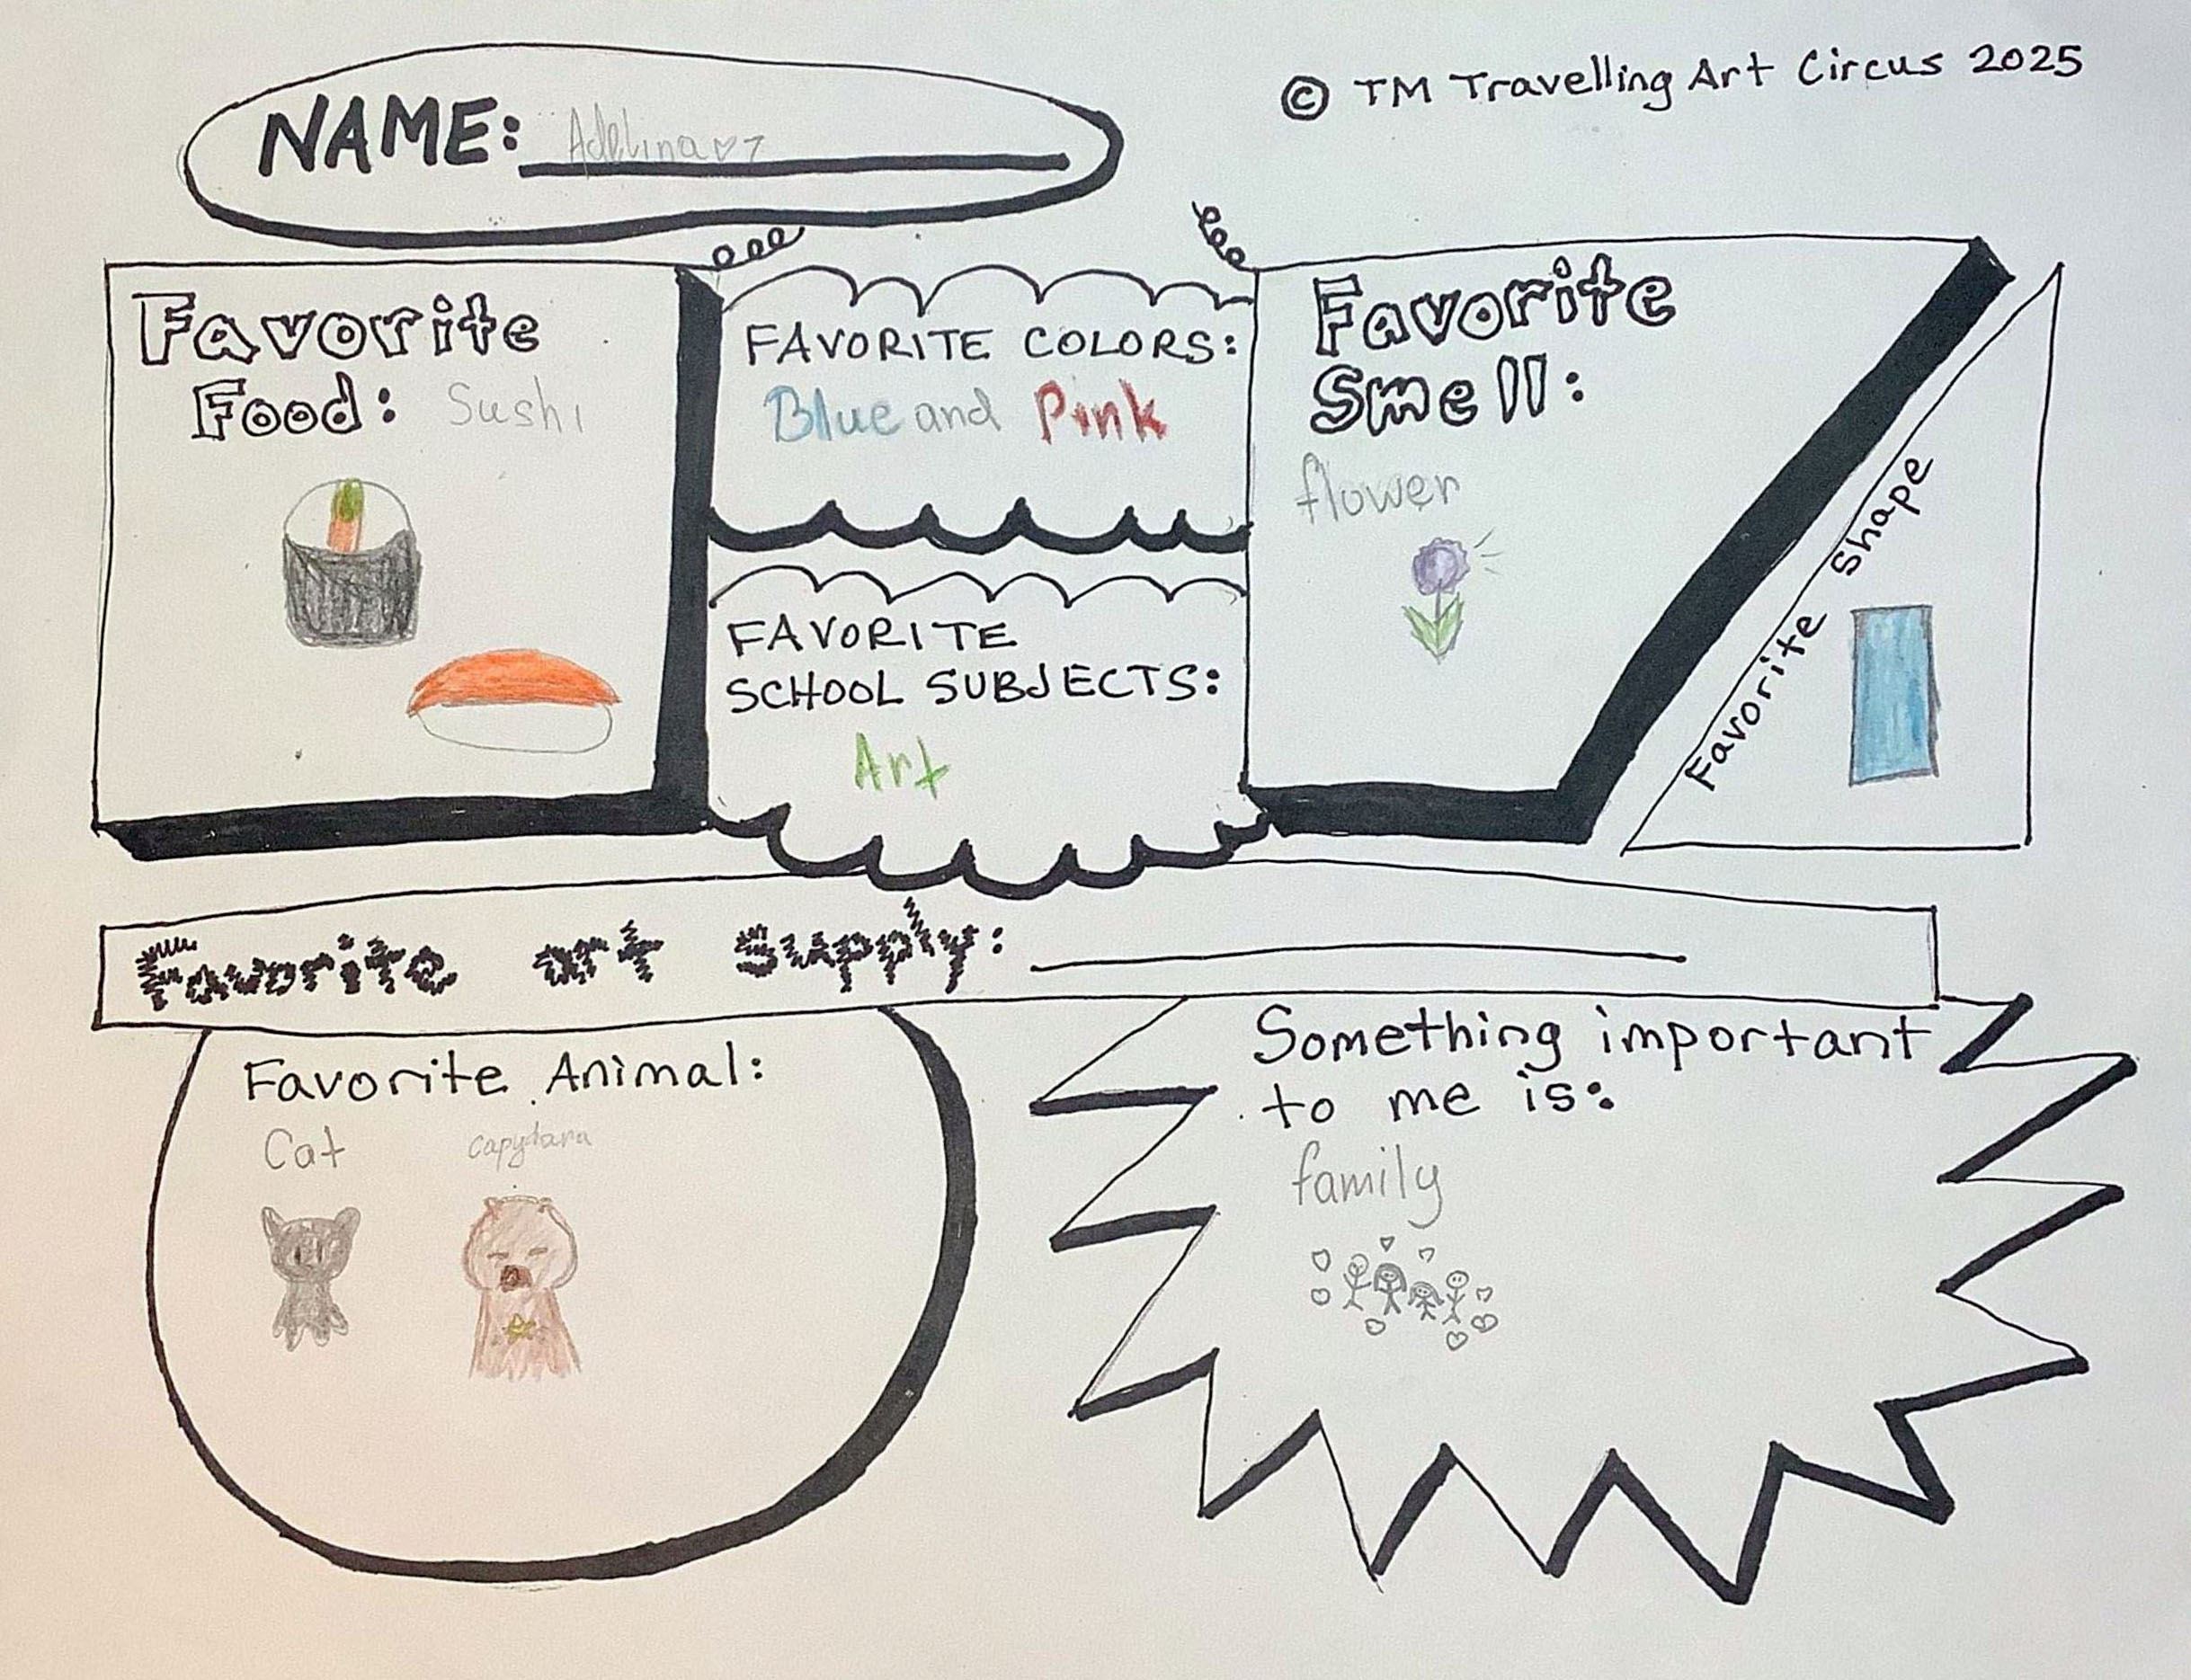 © TM Travelling Art Circus 2025
NAME: Adelina
Favorite
Food: Sushi
FAVORITE COLORS:
Blue and Pink
FAVORITE
SCHOOL SUBJECTS:
Art
Favorite
Smell:
flower
Favorite Shape
Favorite art Supply:
Favorite Animal:
Cat capybara
Something important
to me is:
family